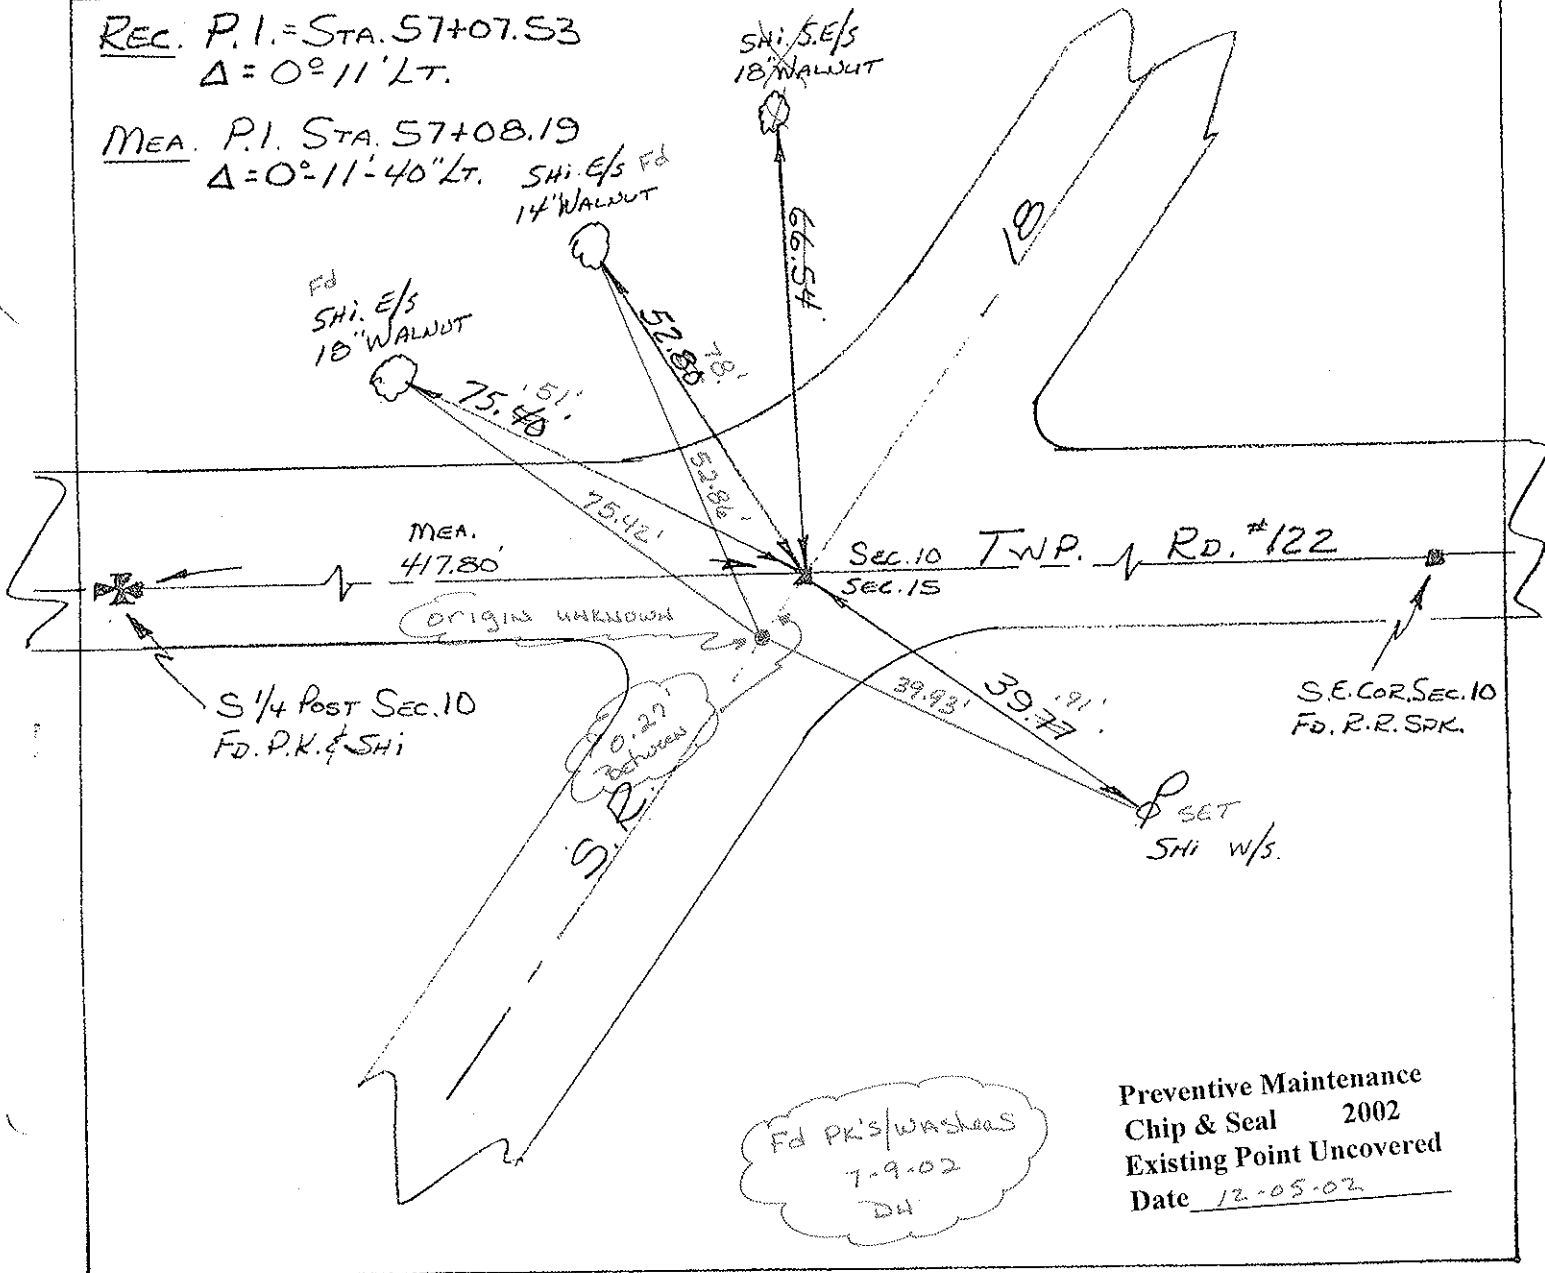 REC. P.I. = STA. 57+07.53
Δ = 0° 11' LT.
MEA. P.I. STA. 57+08.19
Δ = 0°-11'-40" LT.
SHi. S.E/S
18" WALNUT
SHi. E/S Fd
14" WALNUT
Fd
SHi. E/S
18" WALNUT
66.54'
52.80
78'
75.40
51'
52.86'
75.42'
18
MEA.
417.80'
SEC. 10 TWP. RD. #122
SEC. 15
ORIGIN UNKNOWN
S 1/4 POST SEC. 10
FD. P.K. & SHi
0.27'
BETWEEN
S.R.
39.93'
39.77
.91'
S.E. COR. SEC. 10
FD. R.R. SPK.
SET
SHi W/S.
Fd PK'S/WASHERS
7-9-02
DW
Preventive Maintenance
Chip & Seal 2002
Existing Point Uncovered
Date 12-05-02